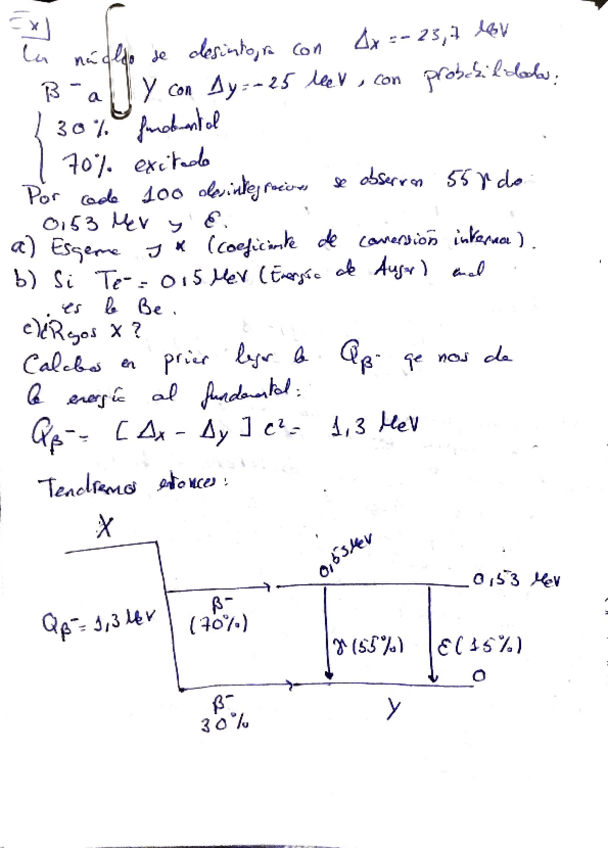 Ex]
Un núcleo se desintegra con Δx = -23,7 MeV
β⁻ a Y con Δy = -25 MeV, con probabilidades:
30% fundmental
70% exitado
Por cada 100 desintegraciones se observan 55 γ de
0,53 MeV y ε.
a) Esqeme y α (coeficiente de conversión interna).
b) Si Te⁻ = 0,5 MeV (Energía de Auger) cual
es la Be.
c) ¿Rayos X?
Calculamos en primer lugar la Qβ⁻ qe nos da
la energía al fundamental:
Qβ⁻ = [Δx - Δy] c² = 1,3 MeV
Tendremos entonces:
X
0,53 MeV
0,53 MeV
β⁻
(70%)
Qβ⁻ = 1,3 MeV
γ (55%)
ε (15%)
0
β⁻
30%
Y